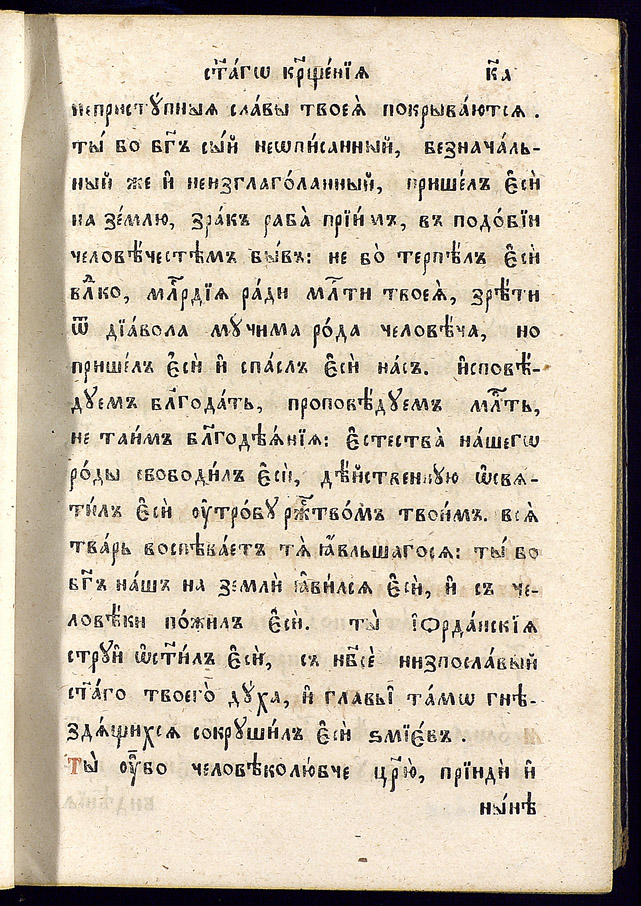 ст҃а́гѡ кр҃ще́нїѧ к҃а
непристꙋ́пныѧ сла́вы твоеѧ̀ покрыва́ютсѧ .
ты́ бо бг҃ъ сы́й неѡпи́санный, безнача́ль-
ный же и҆ неизглаго́ланный, прише́лъ є҆сѝ
на зе́млю, зра́къ раба̀ прїи́мъ, въ подо́бїи
человѣ́честѣмъ бы́въ: не бо̀ терпѣ́лъ є҆сѝ
влⷣко, млⷭ҇рдїѧ ра́ди млⷭ҇ти твоеѧ̀, зрѣ́ти
ѿ дїа́вола мꙋчима ро́да человѣ́ча, но
прише́лъ є҆сѝ и҆ спа́слъ є҆сѝ на́съ. и҆сповѣ́-
дꙋемъ блг҃ода́ть, проповѣ́дꙋемъ млⷭ҇ть,
не таи́мъ блг҃одѣѧ́нїѧ: є҆стества̀ на́шегѡ
ро́ды свободи́лъ є҆сѝ, дѣ́йственнꙋю ѡ҆свѧ-
ти́лъ є҆сѝ ᲂу҆тро́бꙋ ржⷭ҇тво́мъ твои́мъ. всѧ̀
тва́рь воспѣва́етъ тѧ̀ ꙗ҆́вльшагосѧ: ты́ бо
бг҃ъ на́шъ на землѝ ꙗ҆ви́лсѧ є҆сѝ, и҆ съ че-
ловѣ́ки по́жилъ є҆сѝ. ты̀ і҆ѻрда́нскїѧ
стрꙋи̑ ѡ҆ст҃и́лъ є҆сѝ, съ нб҃сѐ низпосла́вый
ст҃а́го твоего̀ дꙋ́ха, и҆ главы̑ та́мѡ гнѣ-
здѧ́щихсѧ сокрꙋши́лъ є҆сѝ ѕмїе́въ .
Ты̀ ᲂу҆̀бо человѣколю́бче цр҃ю̀, прїидѝ и҆
ны́нѣ